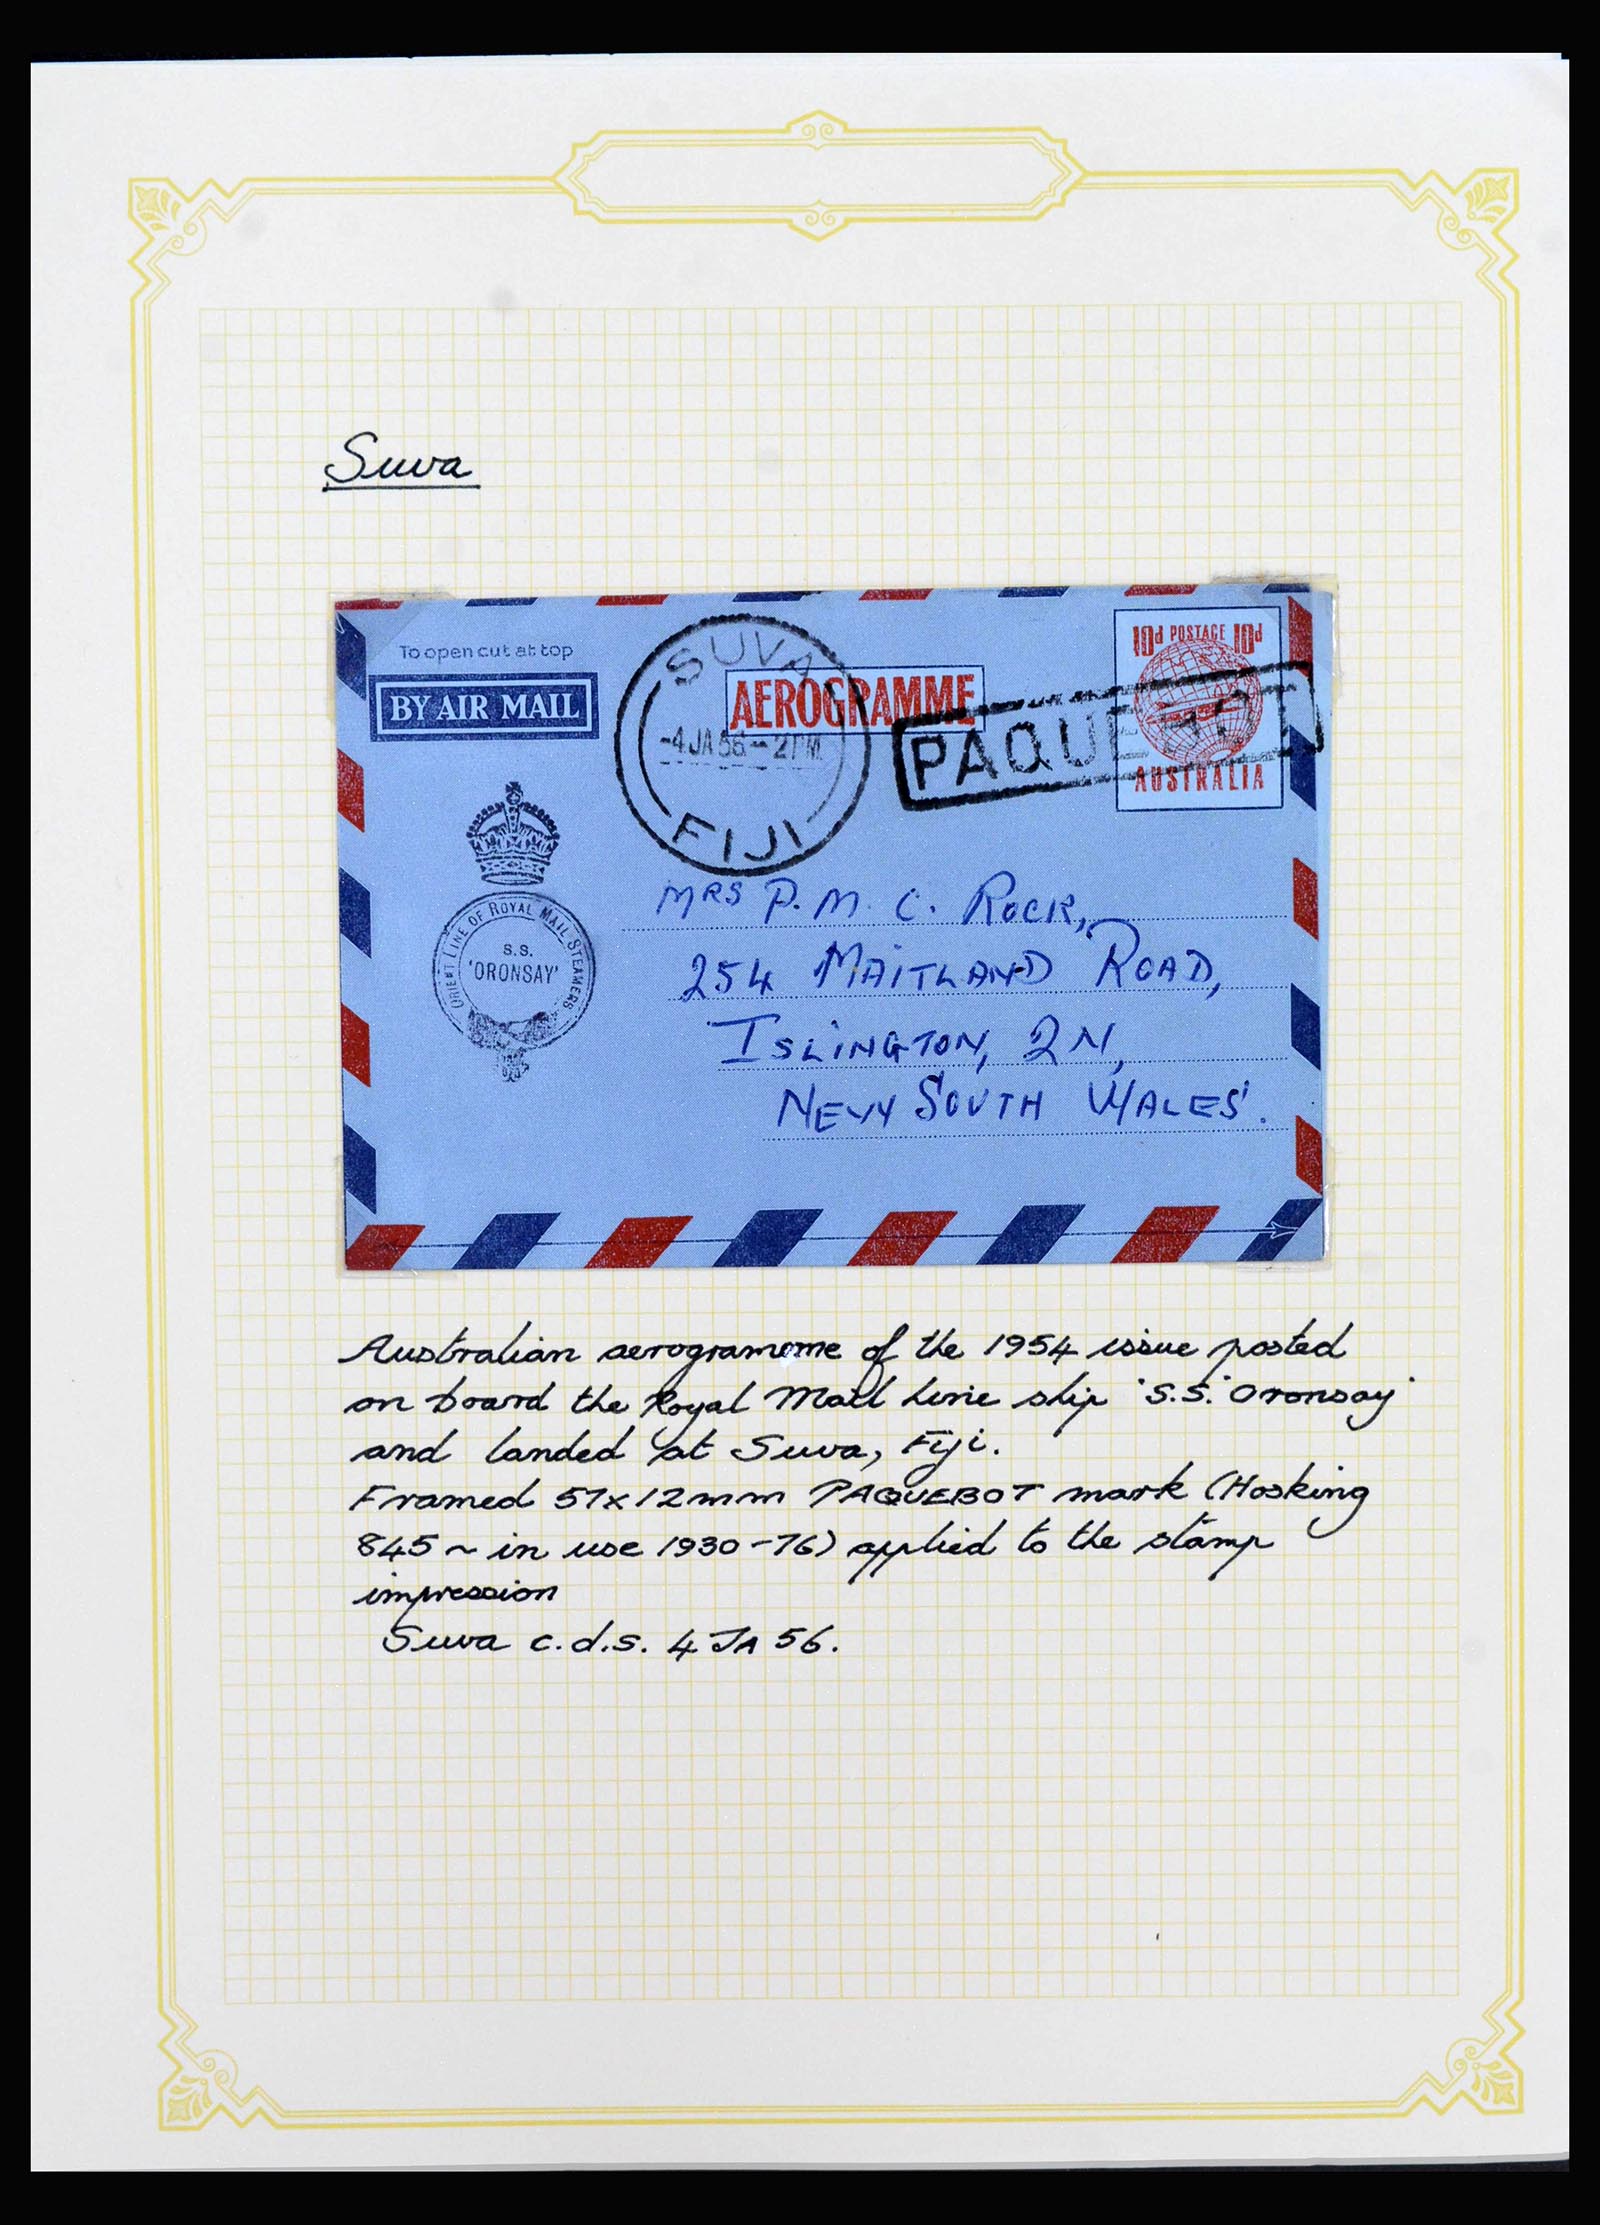 Suva
To open cut at top
BY AIR MAIL
SUVA
-4 JA 56 - 2 PM
FIJI
AEROGRAMME
PAQUEBOT
10d POSTAGE 10d
AUSTRALIA
ORIENT LINE OF ROYAL MAIL STEAMERS
S.S.
'ORONSAY'
MRS P. M. C. ROCK,
254 MAITLAND ROAD,
ISLINGTON, 2N,
NEW SOUTH WALES.
Australian aerogramme of the 1954 issue posted
on board the Royal Mail Line ship 'S.S. Oronsay'
and landed at Suva, Fiji.
Framed 57x12mm PAQUEBOT mark (Hosking
845 ~ in use 1930-76) applied to the stamp
impression
Suva c.d.s. 4 JA 56.